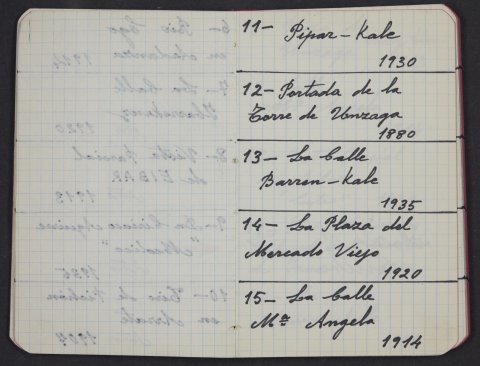 11- Pipar-Kale
1930
12- Portada de la
Torre de Unzaga
1880
13- La Calle
Barren-Kale
1935
14- La Plaza del
Mercado Viejo
1920
15- La Calle
Mª Angela
1914